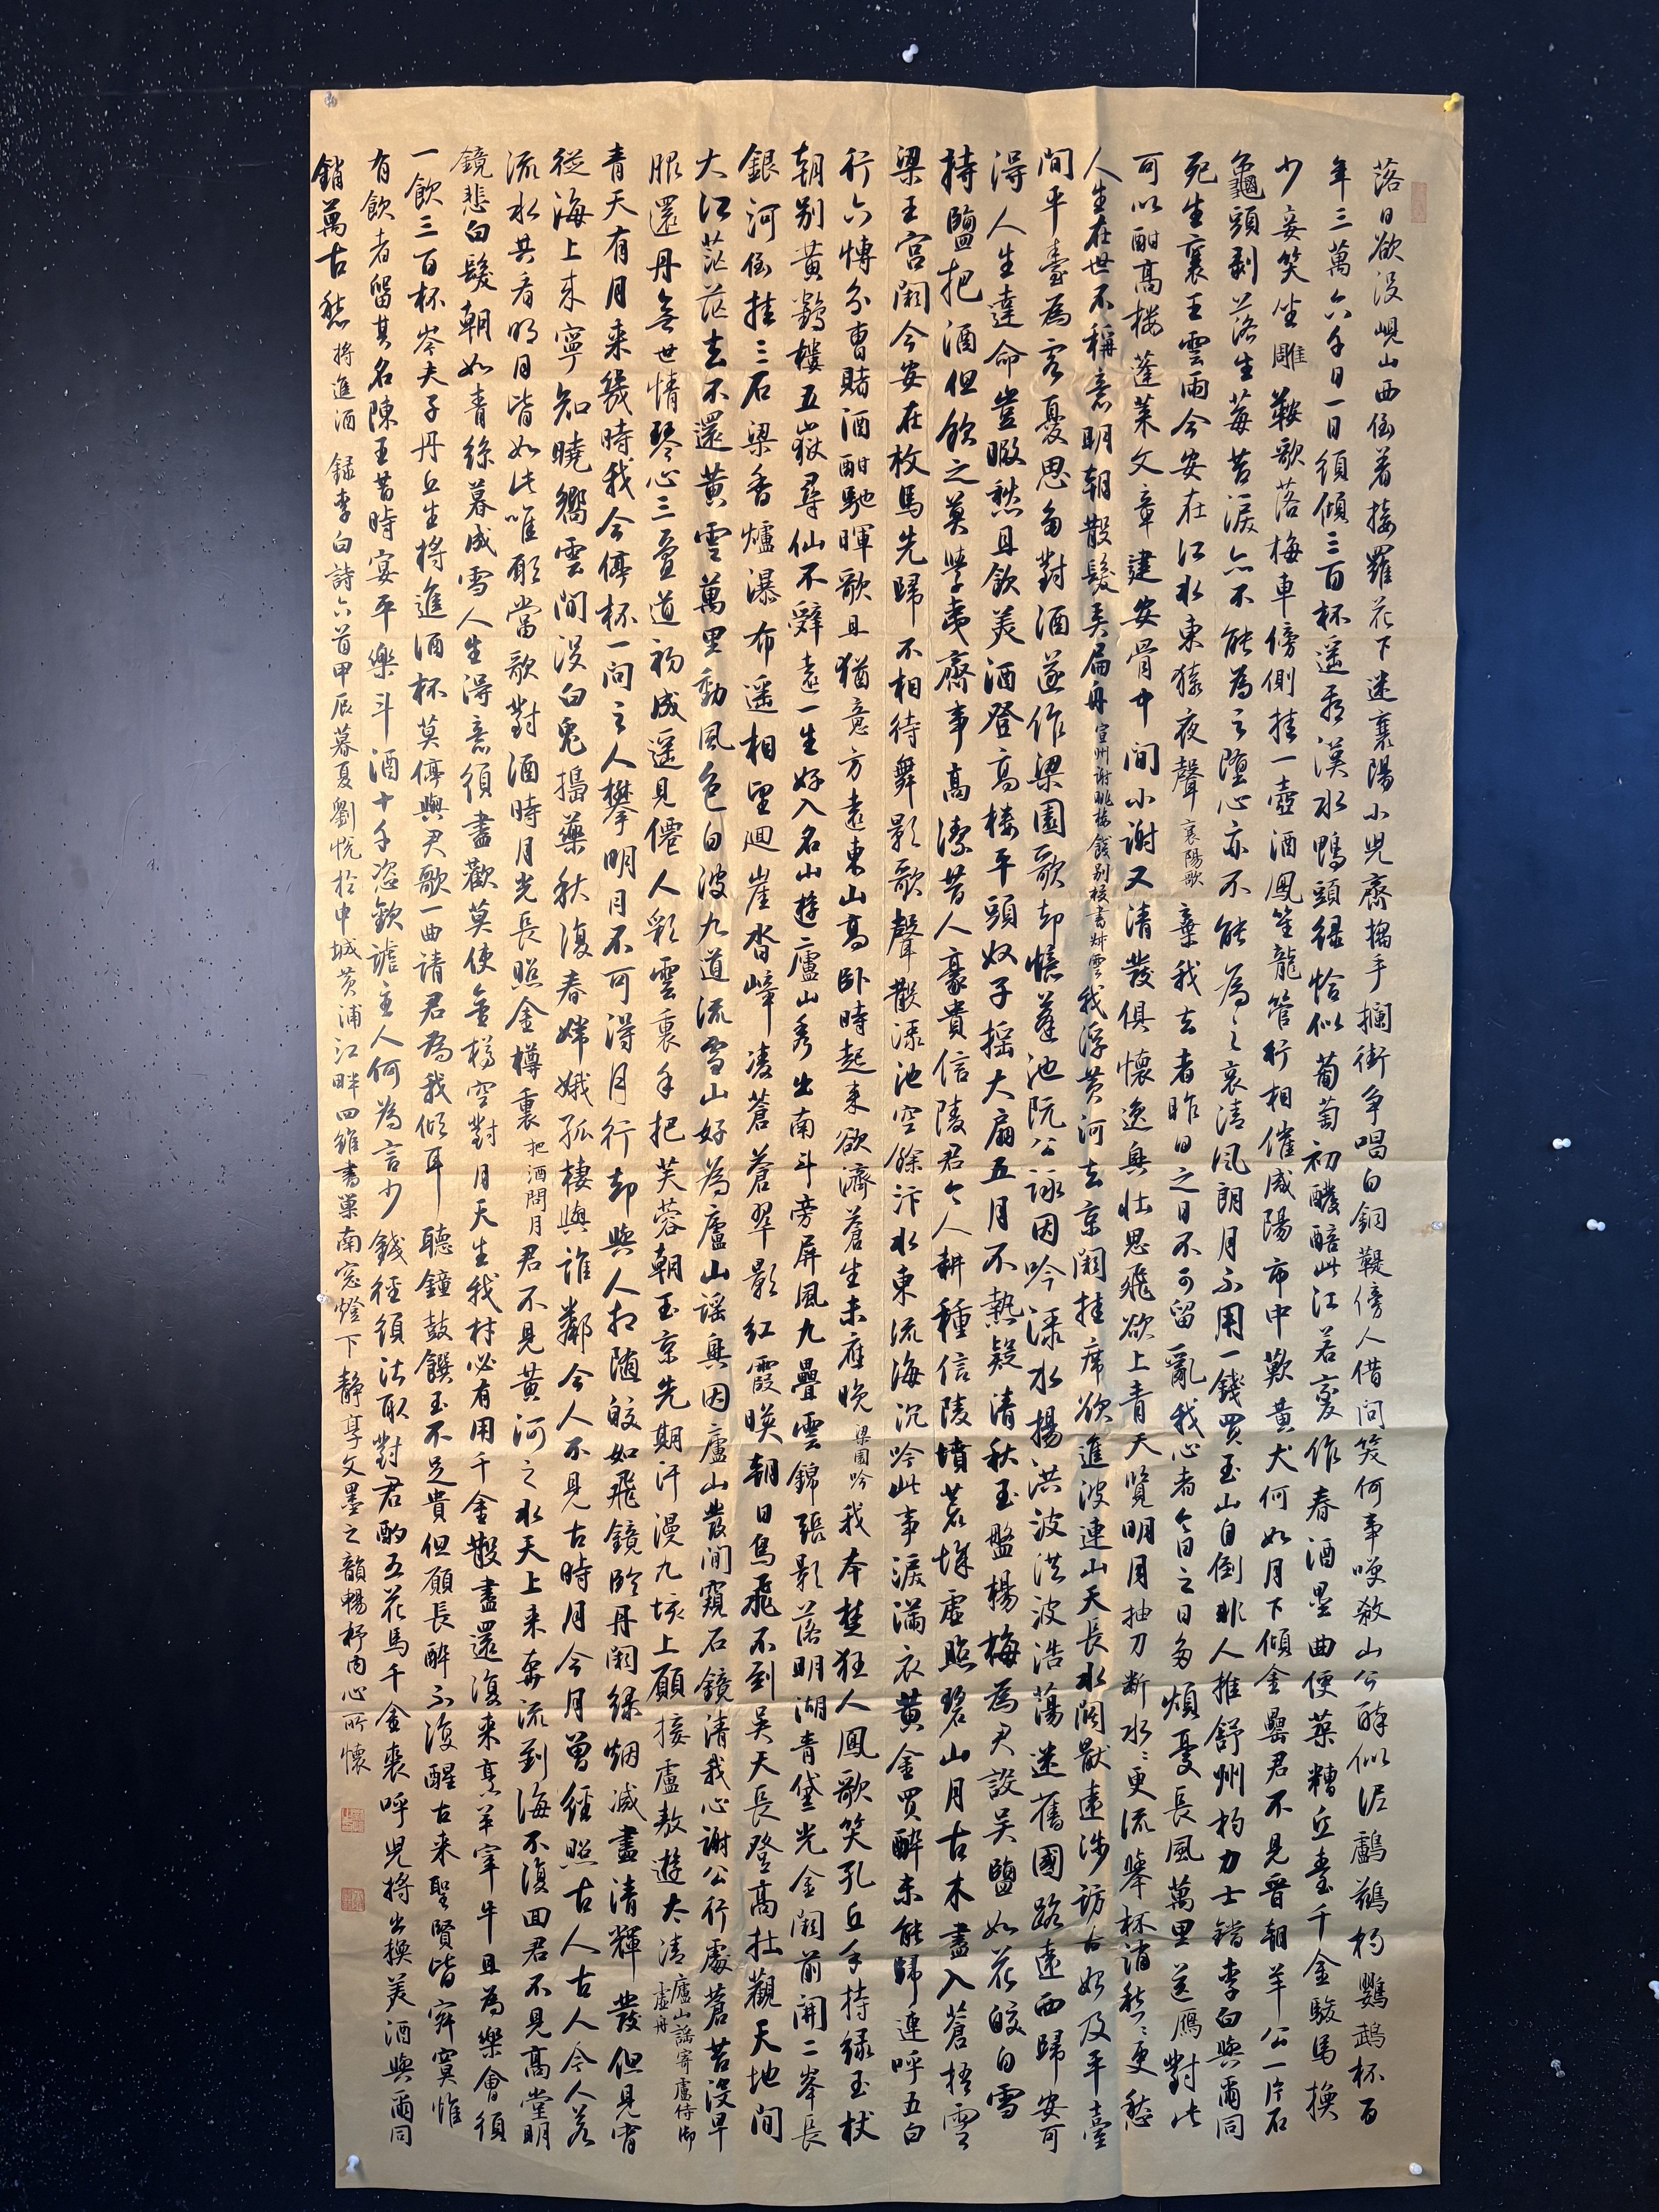 落日欲没峴山西倒著接䍦花下迷襄陽小兒齊拍手攔街争唱白銅鞮傍人借問笑何事笑殺山公醉似泥鸕鷀杓鸚鵡杯百
年三萬六千日一日須傾三百杯遥看漢水鴨頭緑恰似葡萄初醱醅此江若變作春酒壘曲便築糟丘臺千金駿馬換
少妾笑坐雕鞍歌落梅車傍側挂一壺酒鳳笙龍管行相催咸陽市中歎黄犬何如月下傾金罍君不見晉朝羊公一片石
龜頭剥落生莓苔淚亦不能為之墮心亦不能為之哀清風朗月不用一錢買玉山自倒非人推舒州杓力士鐺李白與爾同
死生襄王雲雨今安在江水東流猿夜聲 襄陽歌 棄我去者昨日之日不可留亂我心者今日之日多煩憂長風萬里送秋雁對此
可以酣高樓蓬萊文章建安骨中間小謝又清發俱懷逸興壯思飛欲上青天覽明月抽刀断水水更流舉杯消愁愁更愁
人生在世不稱意明朝散髮弄扁舟 宣州謝朓樓餞别校書叔雲 我浮黄河去京闕挂席欲進波連山天長水闊厭遠涉訪古始及平臺
間平臺為客憂思多對酒遂作梁園歌却憶蓬池阮公詠因吟渌水揚洪波洪波浩蕩迷舊國路遠西歸安可
得人生達命豈暇愁且飲美酒登高樓平頭奴子摇大扇五月不熱疑清秋玉盤楊梅為君設吴鹽如花皎白雪
持鹽把酒但飲之莫學夷齊事高潔昔人豪貴信陵君今人耕種信陵墳荒城虚照碧山月古木盡入蒼梧雲
梁王宫闕今安在枚馬先歸不相待舞影歌聲散渌池空餘汴水東流海沉吟此事淚滿衣黄金買醉未能歸連呼五白
行六博分曹賭酒酣馳暉歌且猶意方遠東山高卧時起来欲濟蒼生未應晚 梁園吟 我本楚狂人鳳歌笑孔丘手持緑玉杖
朝别黄鶴樓五嶽尋仙不辭遠一生好入名山遊廬山秀出南斗旁屏風九疊雲錦張影落明湖青黛光金闕前開二峯長
銀河倒挂三石梁香爐瀑布遥相望迴崖沓嶂凌蒼蒼翠影紅霞暎朝日鳥飛不到吴天長登高壯觀天地間
大江茫茫去不還黄雲萬里動風色白波九道流雪山好為廬山謡興因廬山發閒窺石鏡清我心謝公行處蒼苔没早
服還丹無世情琴心三疊道初成遥見僊人彩雲裏手把芙蓉朝玉京先期汗漫九垓上願接盧敖遊太清 廬山謡寄盧侍御虚舟
青天有月来幾時我今停杯一問之人攀明月不可得月行却與人相随皎如飛鏡臨丹闕緑烟滅盡清輝發但見宵
從海上来寧知曉嚮雲間没白兔搗藥秋復春嫦娥孤棲與誰鄰今人不見古時月今月曾經照古人古人今人若
流水共看明月皆如此唯願當歌對酒時月光長照金樽裏 把酒問月 君不見黄河之水天上来奔流到海不復回君不見高堂明
鏡悲白髮朝如青絲暮成雪人生得意須盡歡莫使金樽空對月天生我材必有用千金散盡還復来烹羊宰牛且為樂會須
一飲三百杯岑夫子丹丘生將進酒杯莫停與君歌一曲請君為我傾耳聽鐘鼓饌玉不足貴但願長醉不復醒古来聖賢皆寂寞惟
有飲者留其名陳王昔時宴平樂斗酒十千恣歡謔主人何為言少錢徑須沽取對君酌五花馬千金裘呼兒將出換美酒與爾同
銷萬古愁 將進酒 録李白詩六首甲辰暮夏劉悦於申城黄浦江畔四雖書巢南窓燈下靜享文墨之韻暢抒内心所懷